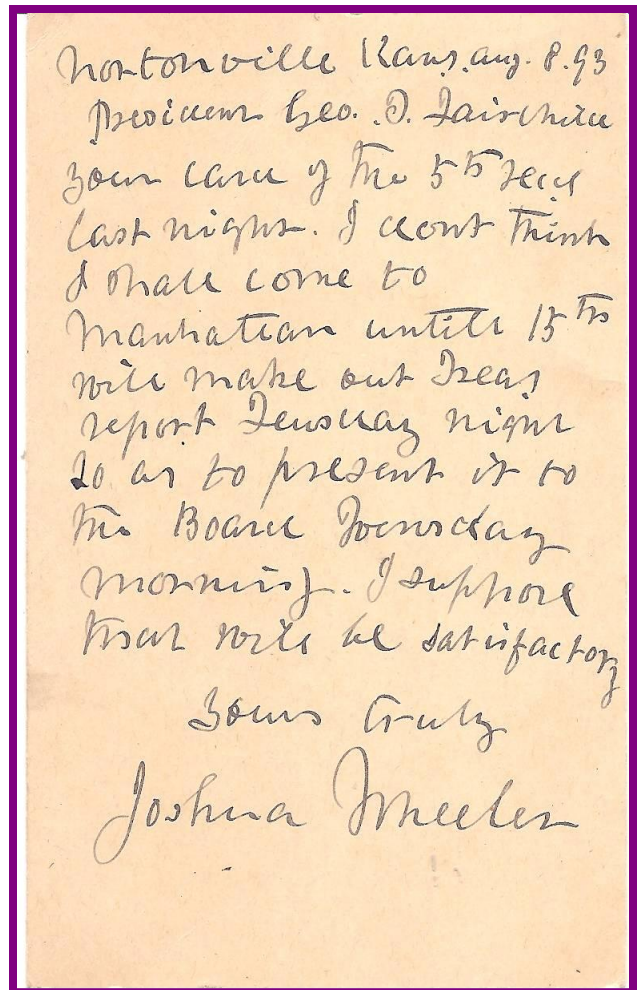 Nortonville Kans. aug. 8. 93
President Geo. T. Fairchild
your card of the 5th recd
last night. I dont think
I shall come to
Manhattan untill 15th
will make out Treas
report Teusday night
so as to present it to
the Board Wensday
morning. I suppose
that will be satisfactory
yours truly
Joshua Wheeler